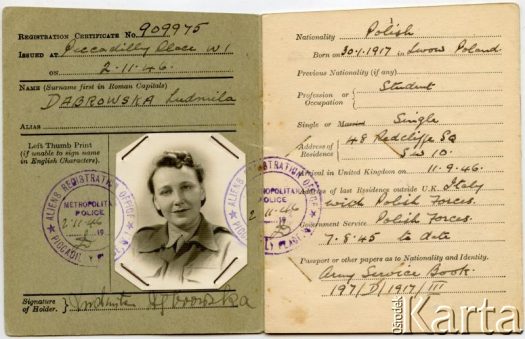 REGISTRATION CERTIFICATE No. 909975
ISSUED AT Piccadilly Place W1
ON 2.11.46.
NAME (Surname first in Roman Capitals)
DABROWSKA Ludmila
ALIAS
Left Thumb Print
(if unable to sign name
in English Characters).
ALIENS REGISTRATION OFFICE
METROPOLITAN
POLICE
2.11.46
19
Signature
of Holder.
Nationality Polish
Born on 30.1.1917 in Lwow Poland.
Previous Nationality (if any)
Profession or
Occupation
Student
Single or Married Single
Address of
Residence
48 Redcliffe SQ
SW10.
Arrival in United Kingdom on 11.9.46.
Address of last Residence outside U.K. Italy
with Polish Forces.
Government Service Polish Forces.
7.8.45 to date
Passport or other papers as to Nationality and Identity.
Army Service Book
197/D/1917/III
ALIENS REGISTRATION OFFICE
METROPOLITAN
POLICE
2.11.46
19
Ośrodek
Karta